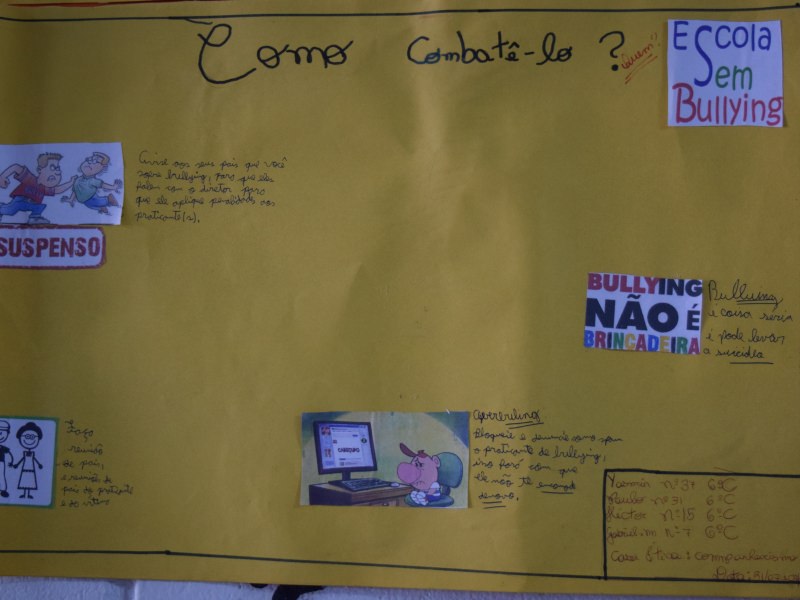 Como Combatê-lo ?
Escola
Sem
Bullying
Avise aos seus pais que você
sofre bullying, para que eles
falem com o diretor para
que ele aplique penalidades aos
praticante(s).
SUSPENSO
BULLYING
NÃO É
BRINCADEIRA
Bullying
é coisa séria
e pode levar
a suicídio
Faça
reunião
de pais,
e reunião do
pais do praticante
e do vítima
CABEÇUDO
Bloqueie e denuncie como spam
o praticante de bullying,
isso fará com que
ele não te
denovo.
Yasmin nº 37 6ºC
nº 31 6ºC
Hector nº 15 6ºC
nº 7 6ºC
companheirismo